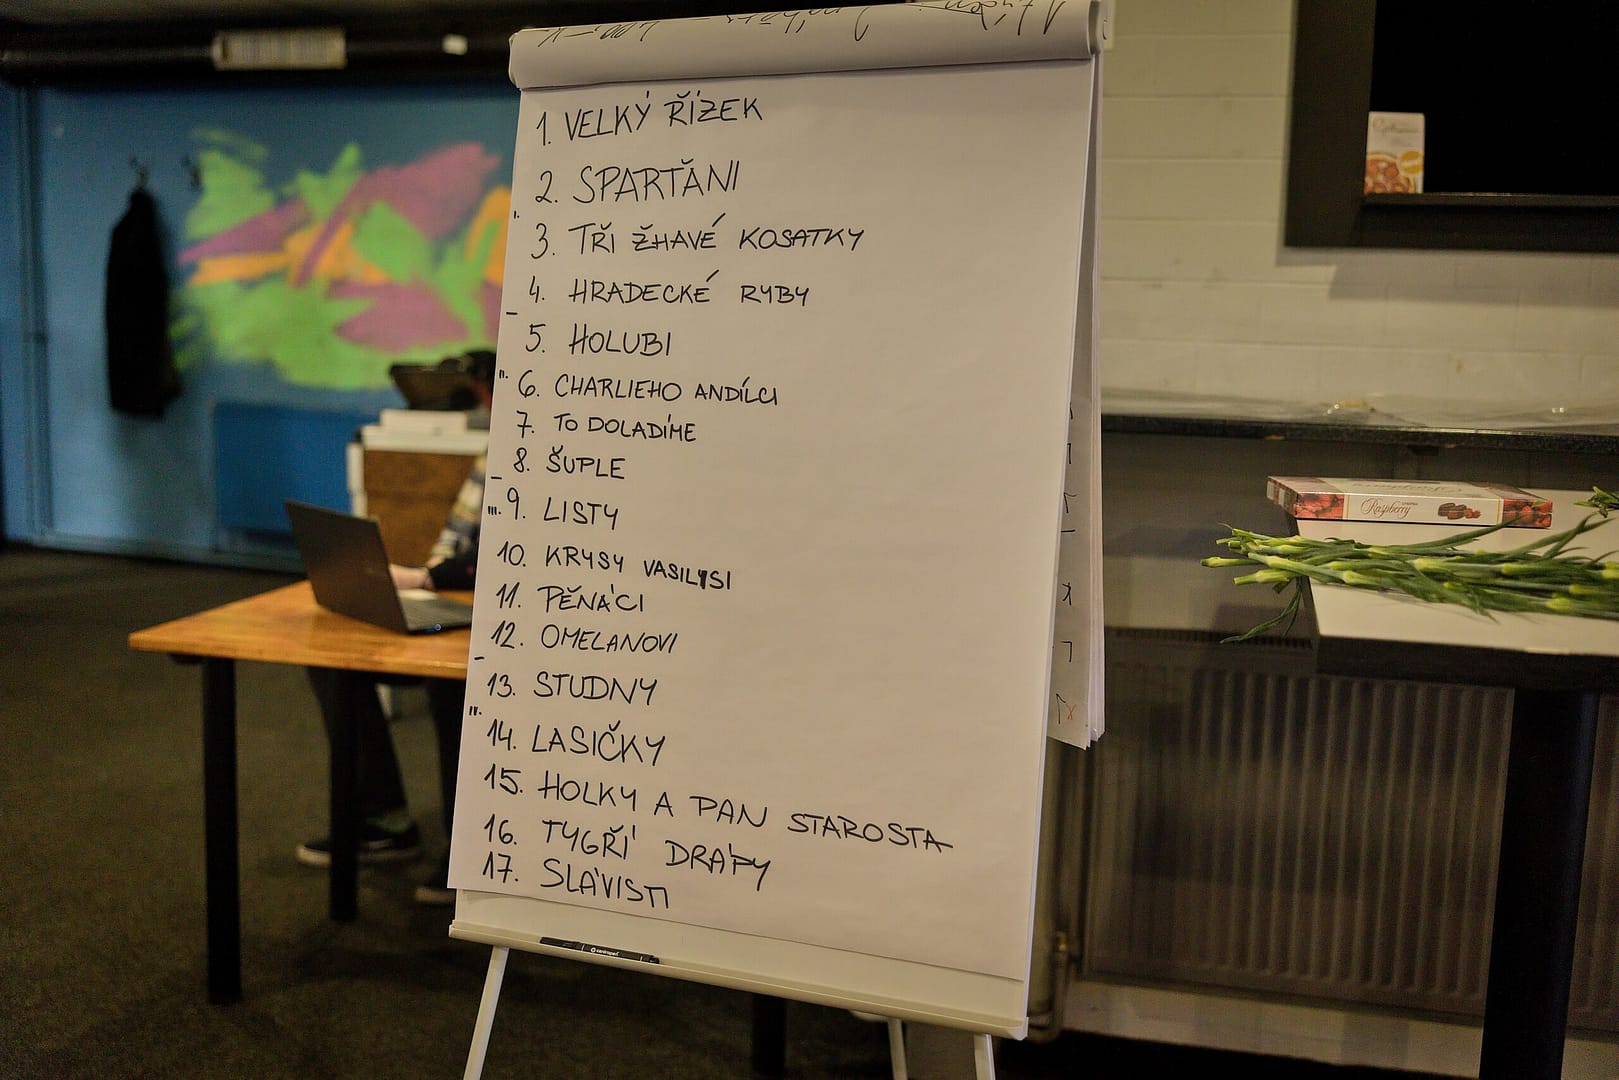 1. VELKÝ ŘÍZEK
2. SPARŤÁNI
3. TŘI ŽHAVÉ KOSATKY
4. HRADECKÉ RYBY
5. HOLUBI
6. CHARLIEHO ANDÍLCI
7. TO DOLADÍME
8. ŠUPLE
9. LISTY
10. KRYSY VASILYSI
11. PĚNÁCI
12. OMELANOVI
13. STUDNY
14. LASIČKY
15. HOLKY A PAN STAROSTA
16. TYGŘÍ DRÁPY
17. SLÁVISTI
Raspberry